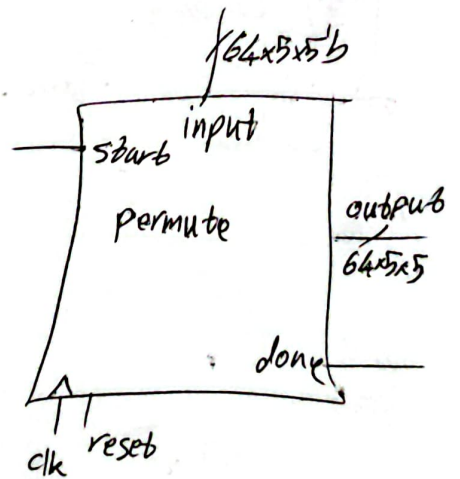 64x5x5'b
input
start
permute
output
64x5x5
done
clk
reset